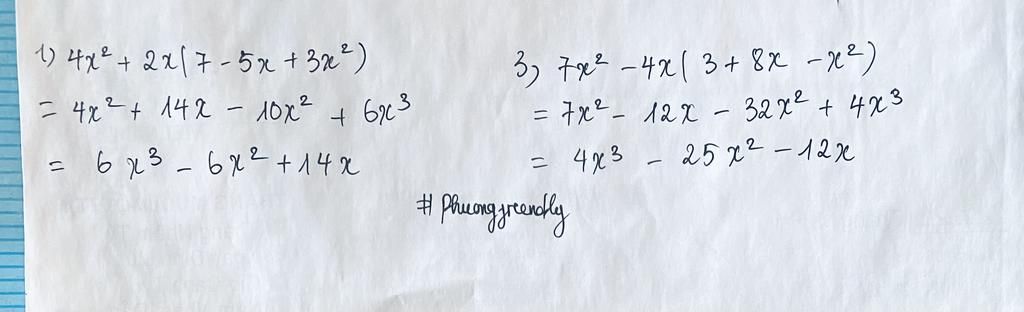 1) 4x² + 2x(7 - 5x + 3x²)
= 4x² + 14x - 10x² + 6x³
= 6x³ - 6x² + 14x
3) 7x² - 4x(3 + 8x - x²)
= 7x² - 12x - 32x² + 4x³
= 4x³ - 25x² - 12x